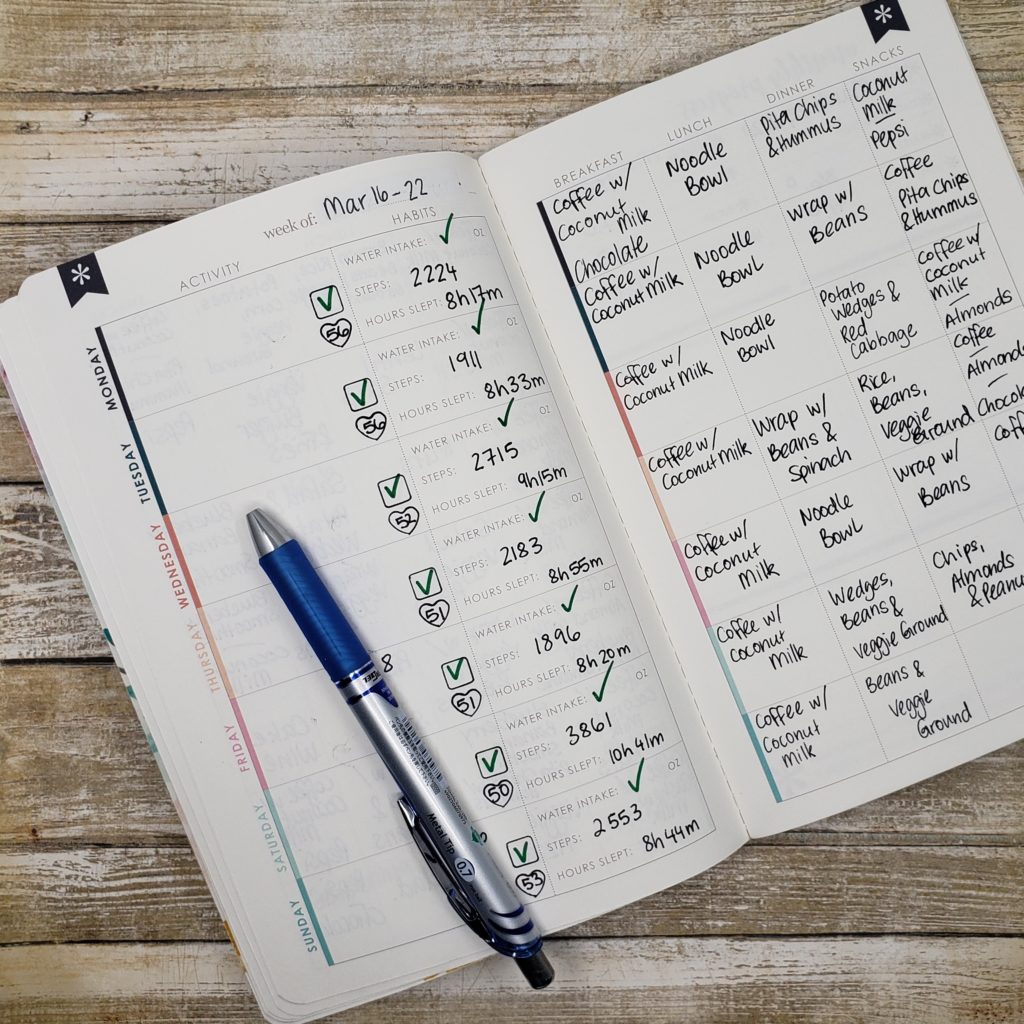 week of: Mar 16-22
ACTIVITY
HABITS
MONDAY
56
WATER INTAKE: ✓ OZ
STEPS: 2224
HOURS SLEPT: 8h17m
TUESDAY
56
WATER INTAKE: ✓ OZ
STEPS: 1911
HOURS SLEPT: 8h33m
WEDNESDAY
52
WATER INTAKE: ✓ OZ
STEPS: 2715
HOURS SLEPT: 9h15m
THURSDAY
51
WATER INTAKE: ✓ OZ
STEPS: 2183
HOURS SLEPT: 8h55m
FRIDAY
8
51
WATER INTAKE: ✓ OZ
STEPS: 1896
HOURS SLEPT: 8h20m
SATURDAY
50
WATER INTAKE: ✓ OZ
STEPS: 3861
HOURS SLEPT: 10h41m
SUNDAY
53
WATER INTAKE: ✓ OZ
STEPS: 2553
HOURS SLEPT: 8h44m
Metal Tip
0.7
BREAKFAST
LUNCH
DINNER
SNACKS
Coffee w/
Coconut
Milk
Chocolate
Noodle
Bowl
Pita Chips
& Hummus
Coconut
Milk
Pepsi
Coffee w/
Coconut Milk
Noodle
Bowl
Wrap w/
Beans
Coffee
Pita Chips
& Hummus
Coffee w/
Coconut Milk
Noodle
Bowl
Potato
Wedges &
Red
Cabbage
Coffee w/
Coconut
Milk
Almonds
Coffee w/
Coconut Milk
Wrap w/
Beans &
Spinach
Rice,
Beans,
Veggie
Ground
Coffee
Almonds
Coffee w/
Coconut
Milk
Noodle
Bowl
Wrap w/
Beans
Coffee w/
Coconut
Milk
Wedges,
Beans &
Veggie Ground
Chips,
Almonds
Coffee w/
Coconut
Milk
Beans &
Veggie
Ground